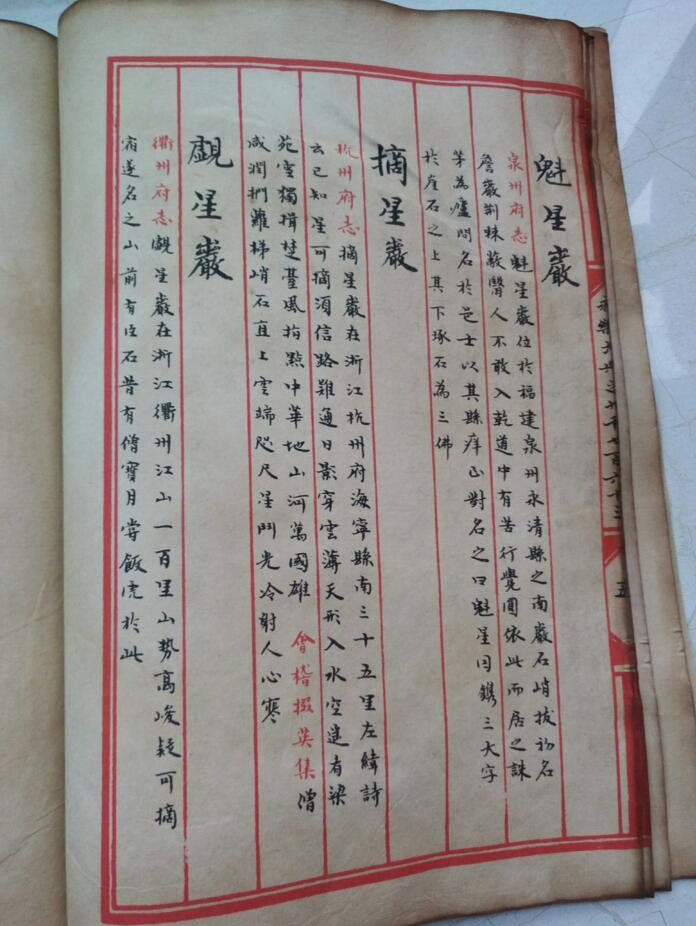 魁星巖
泉州府志魁星巖位於福建泉州永清縣之南巖石峭拔初名
詹巖荆棘蔽翳人不敢入乾道中有苦行覺圓依此而居之誅
茅為廬問名於邑士以其縣庠正對名之曰魁星因鐫三大字
於崖石之上其下琢石為三佛
摘星巖
杭州府志摘星巖在浙江杭州府海寧縣南三十五里左緯詩
云已知星可摘須信路難通日影穿雲薄天形入水空遠有梁
苑雪獨揖楚臺風指點中華地山河萬國雄 會稽掇英集僧
咸潤捫難梯峭石直上雲端咫尺星鬥光冷射人心寒
覷星巖
衢州府志覷星巖在浙江衢州江山一百里山勢高峻疑可摘
宿遂名之山前有巨石昔有僧寶月嘗飯虎於此
五